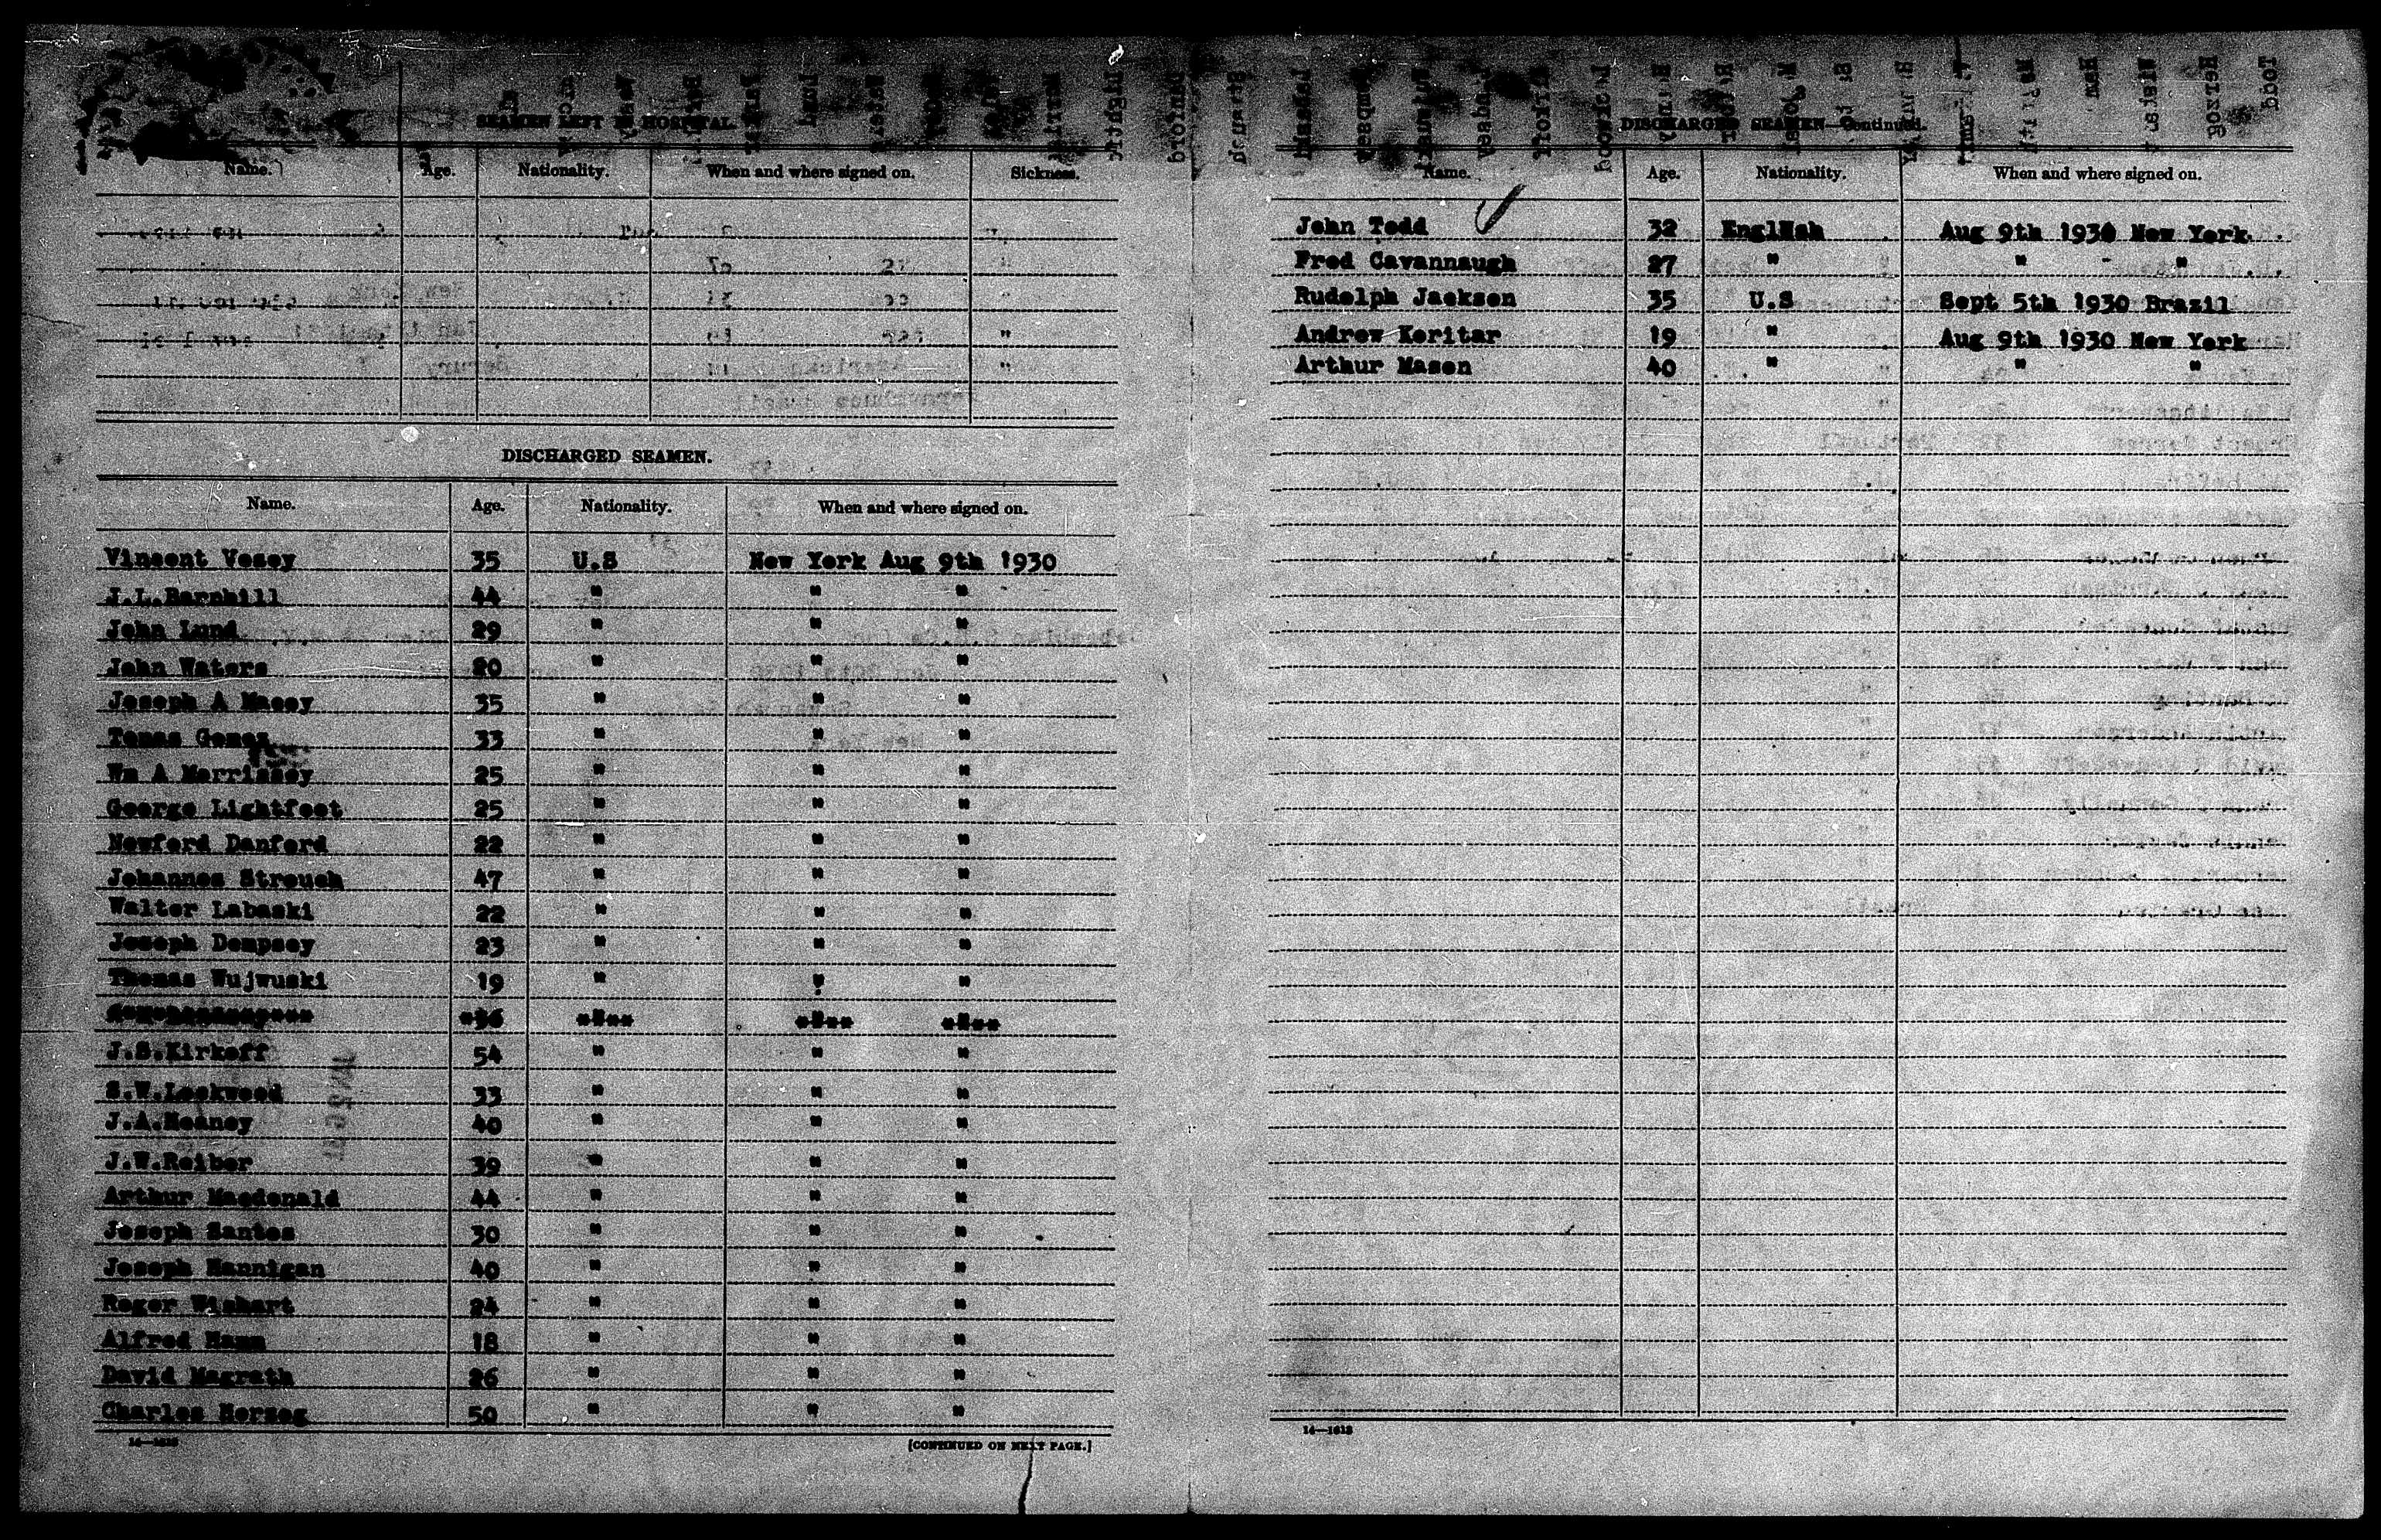 SEAMEN LEFT IN HOSPITAL.
Name. Age. Nationality. When and where signed on. Sickness.
DISCHARGED SEAMEN.
Name. Age. Nationality. When and where signed on.
Vincent Vesey 35 U.S New York Aug 9th 1930
J.L.Barnhill 44 " " "
John Lund 29 " " "
John Waters 20 " " "
Joseph A Macey 35 " " "
Tomas Gomez 33 " " "
Wm A Morrissey 25 " " "
George Lightfoot 25 " " "
Newford Danford 22 " " "
Johannes Strouch 47 " " "
Walter Labaski 22 " " "
Joseph Dempsey 23 " " "
Thomas Wujwuski 19 " " "
J.S.Kirkoff 54 " " "
S.W.Lockwood 33 " " "
J.A.Meaney 40 " " "
J.W.Reiber 39 " " "
Arthur Macdonald 44 " " "
Joseph Santos 30 " " "
Joseph Hannigan 40 " " "
Roger Wishart 24 " " "
Alfred Hamm 18 " " "
David Magrath 26 " " "
Charles Herzog 50 " " "
14—1613
[CONTINUED ON NEXT PAGE.]
DISCHARGED SEAMEN—Continued.
Name. Age. Nationality. When and where signed on.
John Todd 32 English Aug 9th 1930 New York
Fred Cavannaugh 27 " " "
Rudolph Jackson 35 U.S Sept 5th 1930 Brazil
Andrew Koritar 19 " Aug 9th 1930 New York
Arthur Mason 40 " " "
14—1613